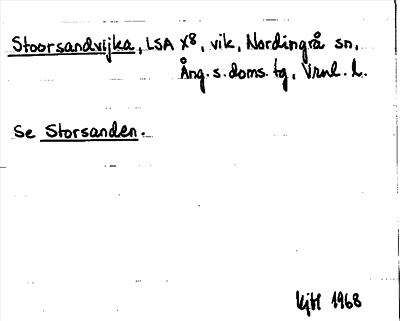 Stoorsandvijka, LSA X8, vik, Nordingrå sn,
Ång. s. doms. tg, Vrnl. l.
Se Storsanden.
KjH 1968